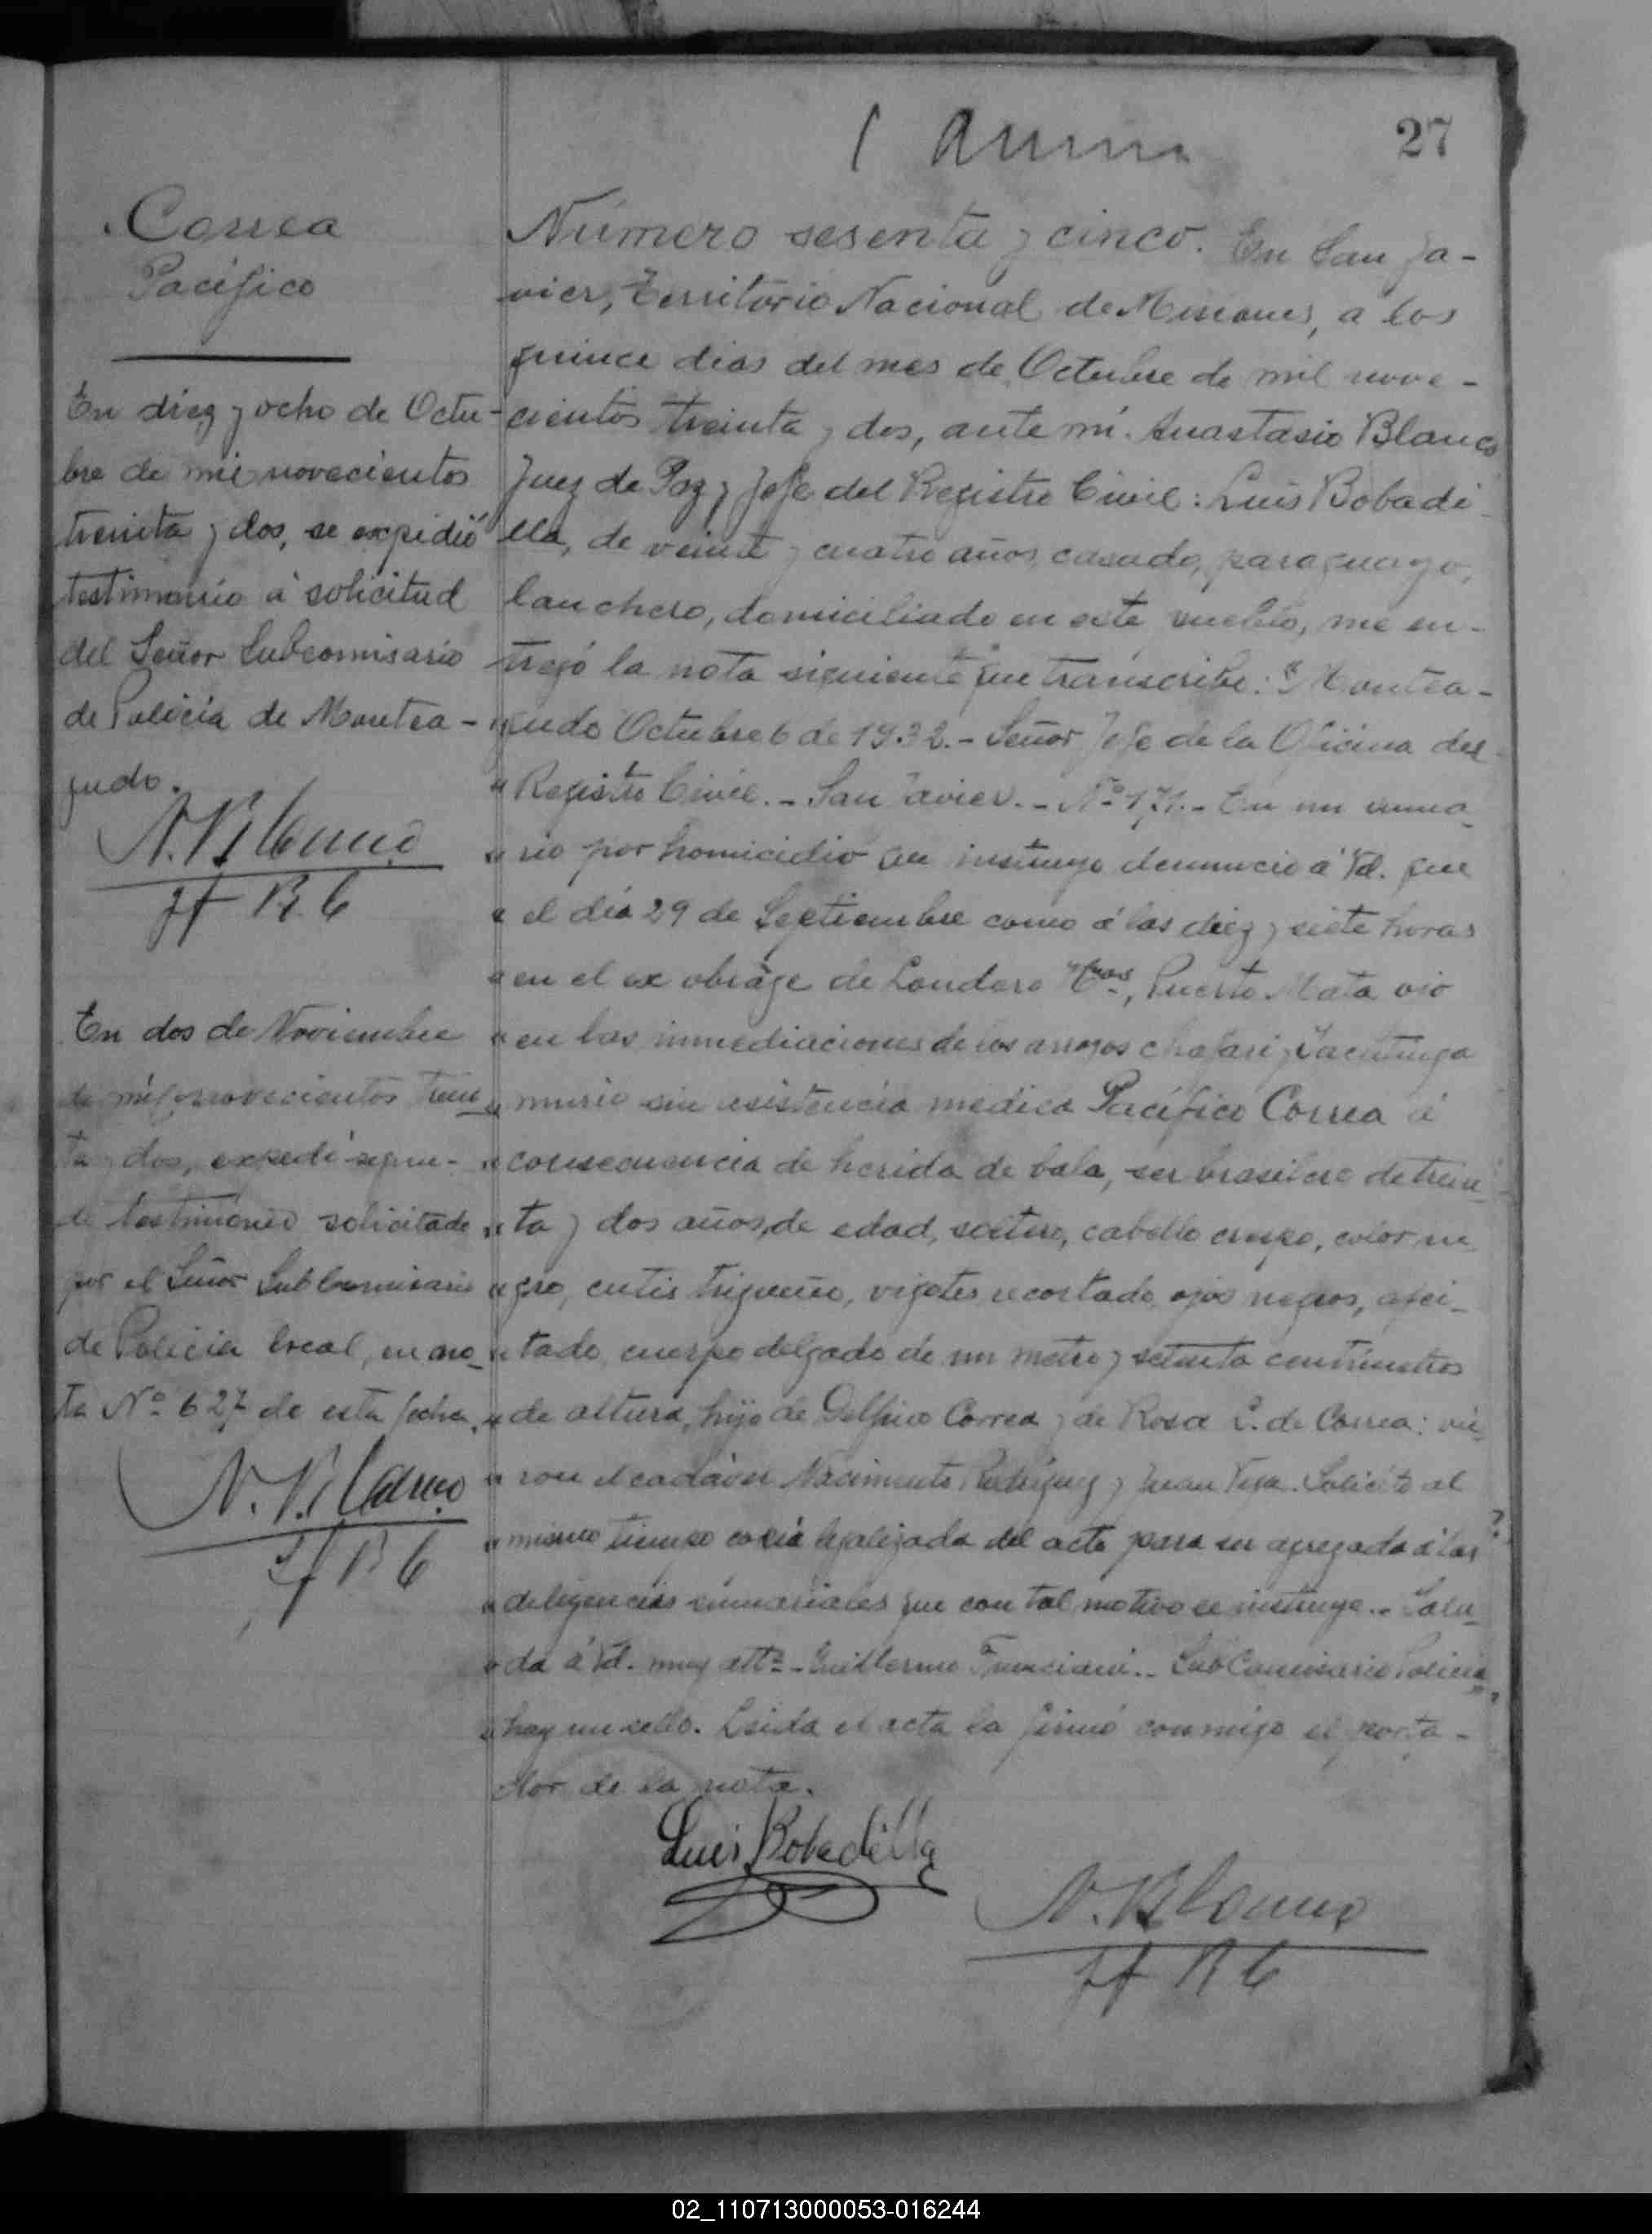 27
Correa
Pacífico
En diez y ocho de Octu-
bre de mil novecientos
treinta y dos, se expidió
testimonio á solicitud
del Señor Subcomisario
de Policía de Montea-
gudo.
A. Blanco
Jf R. C
En dos de Noviembre
de mil novecientos trein-
ta y dos, expedí segun-
do testimonio solicitado
por el Señor SubComisario
de Policía local, en no-
ta Nº 627 de esta fecha.
A. Blanco
Jf R C
Número sesenta y cinco. En San Ja-
vier, Territorio Nacional de Misiones, a los
quince dias del mes de Octubre de mil nove-
cientos treinta y dos, ante mí. Anastasio Blanco
Juez de Paz y Jefe del Registro Civil: Luis Bobadi-
lla, de veinte y cuatro años, casado, paraguayo,
lanchero, domiciliado en este pueblo, me en-
tregó la nota siguiente que transcribe: "Montea-
"gudo Octubre 6 de 1932.- Señor Jefe de la Oficina del
"Registro Civil.- San Javier.- Nº 171.- En un suma-
"rio por homicidio que instruyo denuncio á Vd. que
"el día 29 de Septiembre como á las diez y siete horas
"en el ex obraje de Londero Hnos, Puerto Mata
"en las inmediaciones de los arroyos Chafari y Yacutinga
"murio sin asistencia medica Pacífico Correa á
"consecuencia de herida de bala, ser brasilero de trein-
"ta y dos años, de edad, soltero, cabello crespo, color ne-
"gro, cutis trigueño, vigotes recortado, ojos negros, afei-
"tado, cuerpo delgado de un metro y setenta centimetros
"de altura, hijo de Delfino Correa y de Rosa L. de Correa: vie-
"ron el cadáver Nacimento Rodriguez y Juan Vega. Solicito al
"mismo tiempo copia legalizada del acta para ser agregada á las
"deligencias sumariales que con tal motivo se instruye.- Salu-
"da á Vd. muy attº.- Guillermo .- SubComisario Policia,
"hay un sello. Leida el acta la firmó conmigo el porta-
dor de la nota.
Luis Bobadilla
A. Blanco
Jf R C
02_110713000053-016244